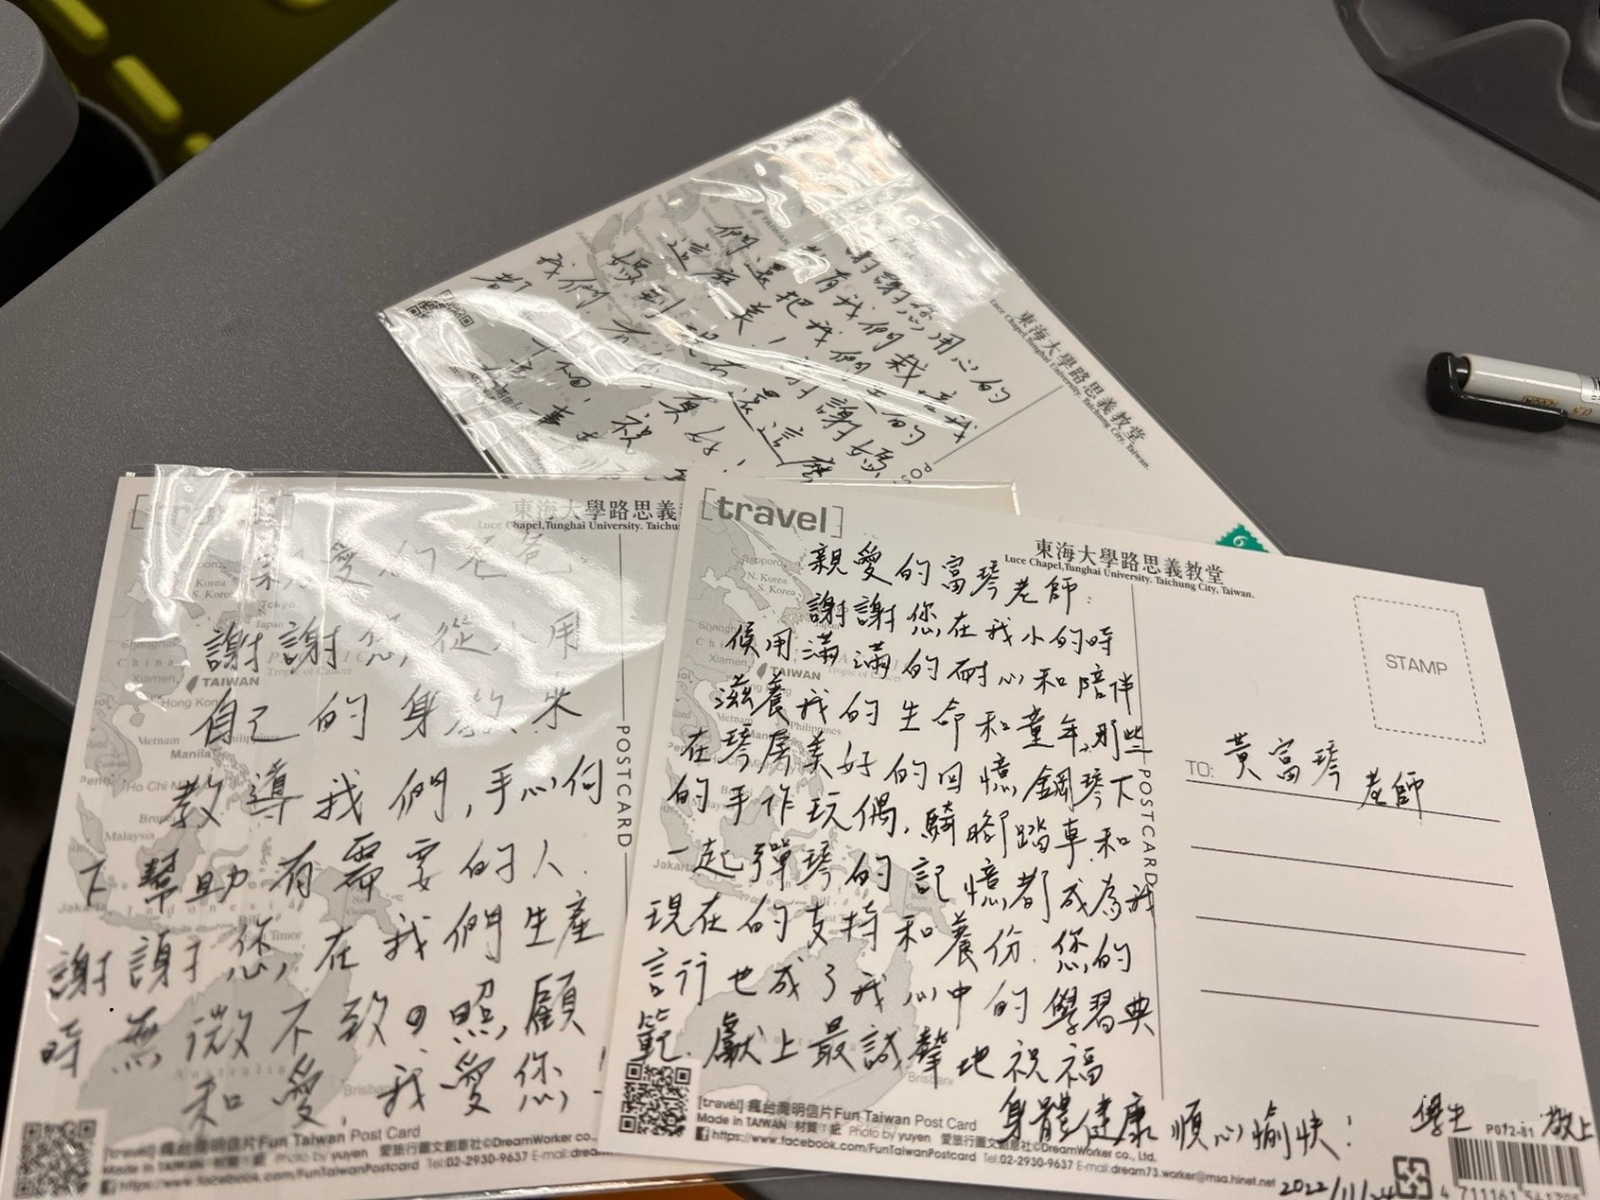 謝謝您用心的
有我們栽培我
們還把我們生的
這麼美,謝謝媽
媽到現在還這麼
我們
東海大學路思義教堂
Luce Chapel,Tunghai University, Taichung City, Taiwan.
東海大學路思義
Luce Chapel,Tunghai University. Taichu
親愛的爸爸
謝謝您,從小用
自己的身教來
教導我們,手心向
下幫助有需要的人.
謝謝您,在我們生產
時無微不致的照顧
和愛,我愛您!
POSTCARD
TAIWAN
[travel] 瘋台灣明信片Fun Taiwan Post Card
Made in TAIWAN 材質:紙 Photo by yuyen 愛旅行圖文創意社©DreamWorker co.,
https://www.facebook.com/FunTaiwanPostcard Tel:02-2930-9637 E-mail:dream
[travel]
東海大學路思義教堂
Luce Chapel,Tunghai University, Taichung City, Taiwan.
親愛的富琴老師:
謝謝您在我小的時
候用滿滿的耐心和陪伴
滋養我的生命和童年,那些
在琴房美好的回憶,鋼琴下
的手作玩偶,騎腳踏車和
一起彈琴的記憶都成為我
現在的支持和養份.您的
言行也成了我心中的學習典
範.獻上最誠摯地祝福
身體健康 順心愉快!
學生 敬上
2022/11/24
POSTCARD
TAIWAN
STAMP
TO: 黃富琴
老師
[travel] 瘋台灣明信片Fun Taiwan Post Card
Made in TAIWAN 材質:紙 Photo by yuyen 愛旅行圖文創意社©DreamWorker co., Ltd.
https://www.facebook.com/FunTaiwanPostcard Tel:02-2930-9637 E-mail:dream73.worker@msa.hinet.net
P072-81